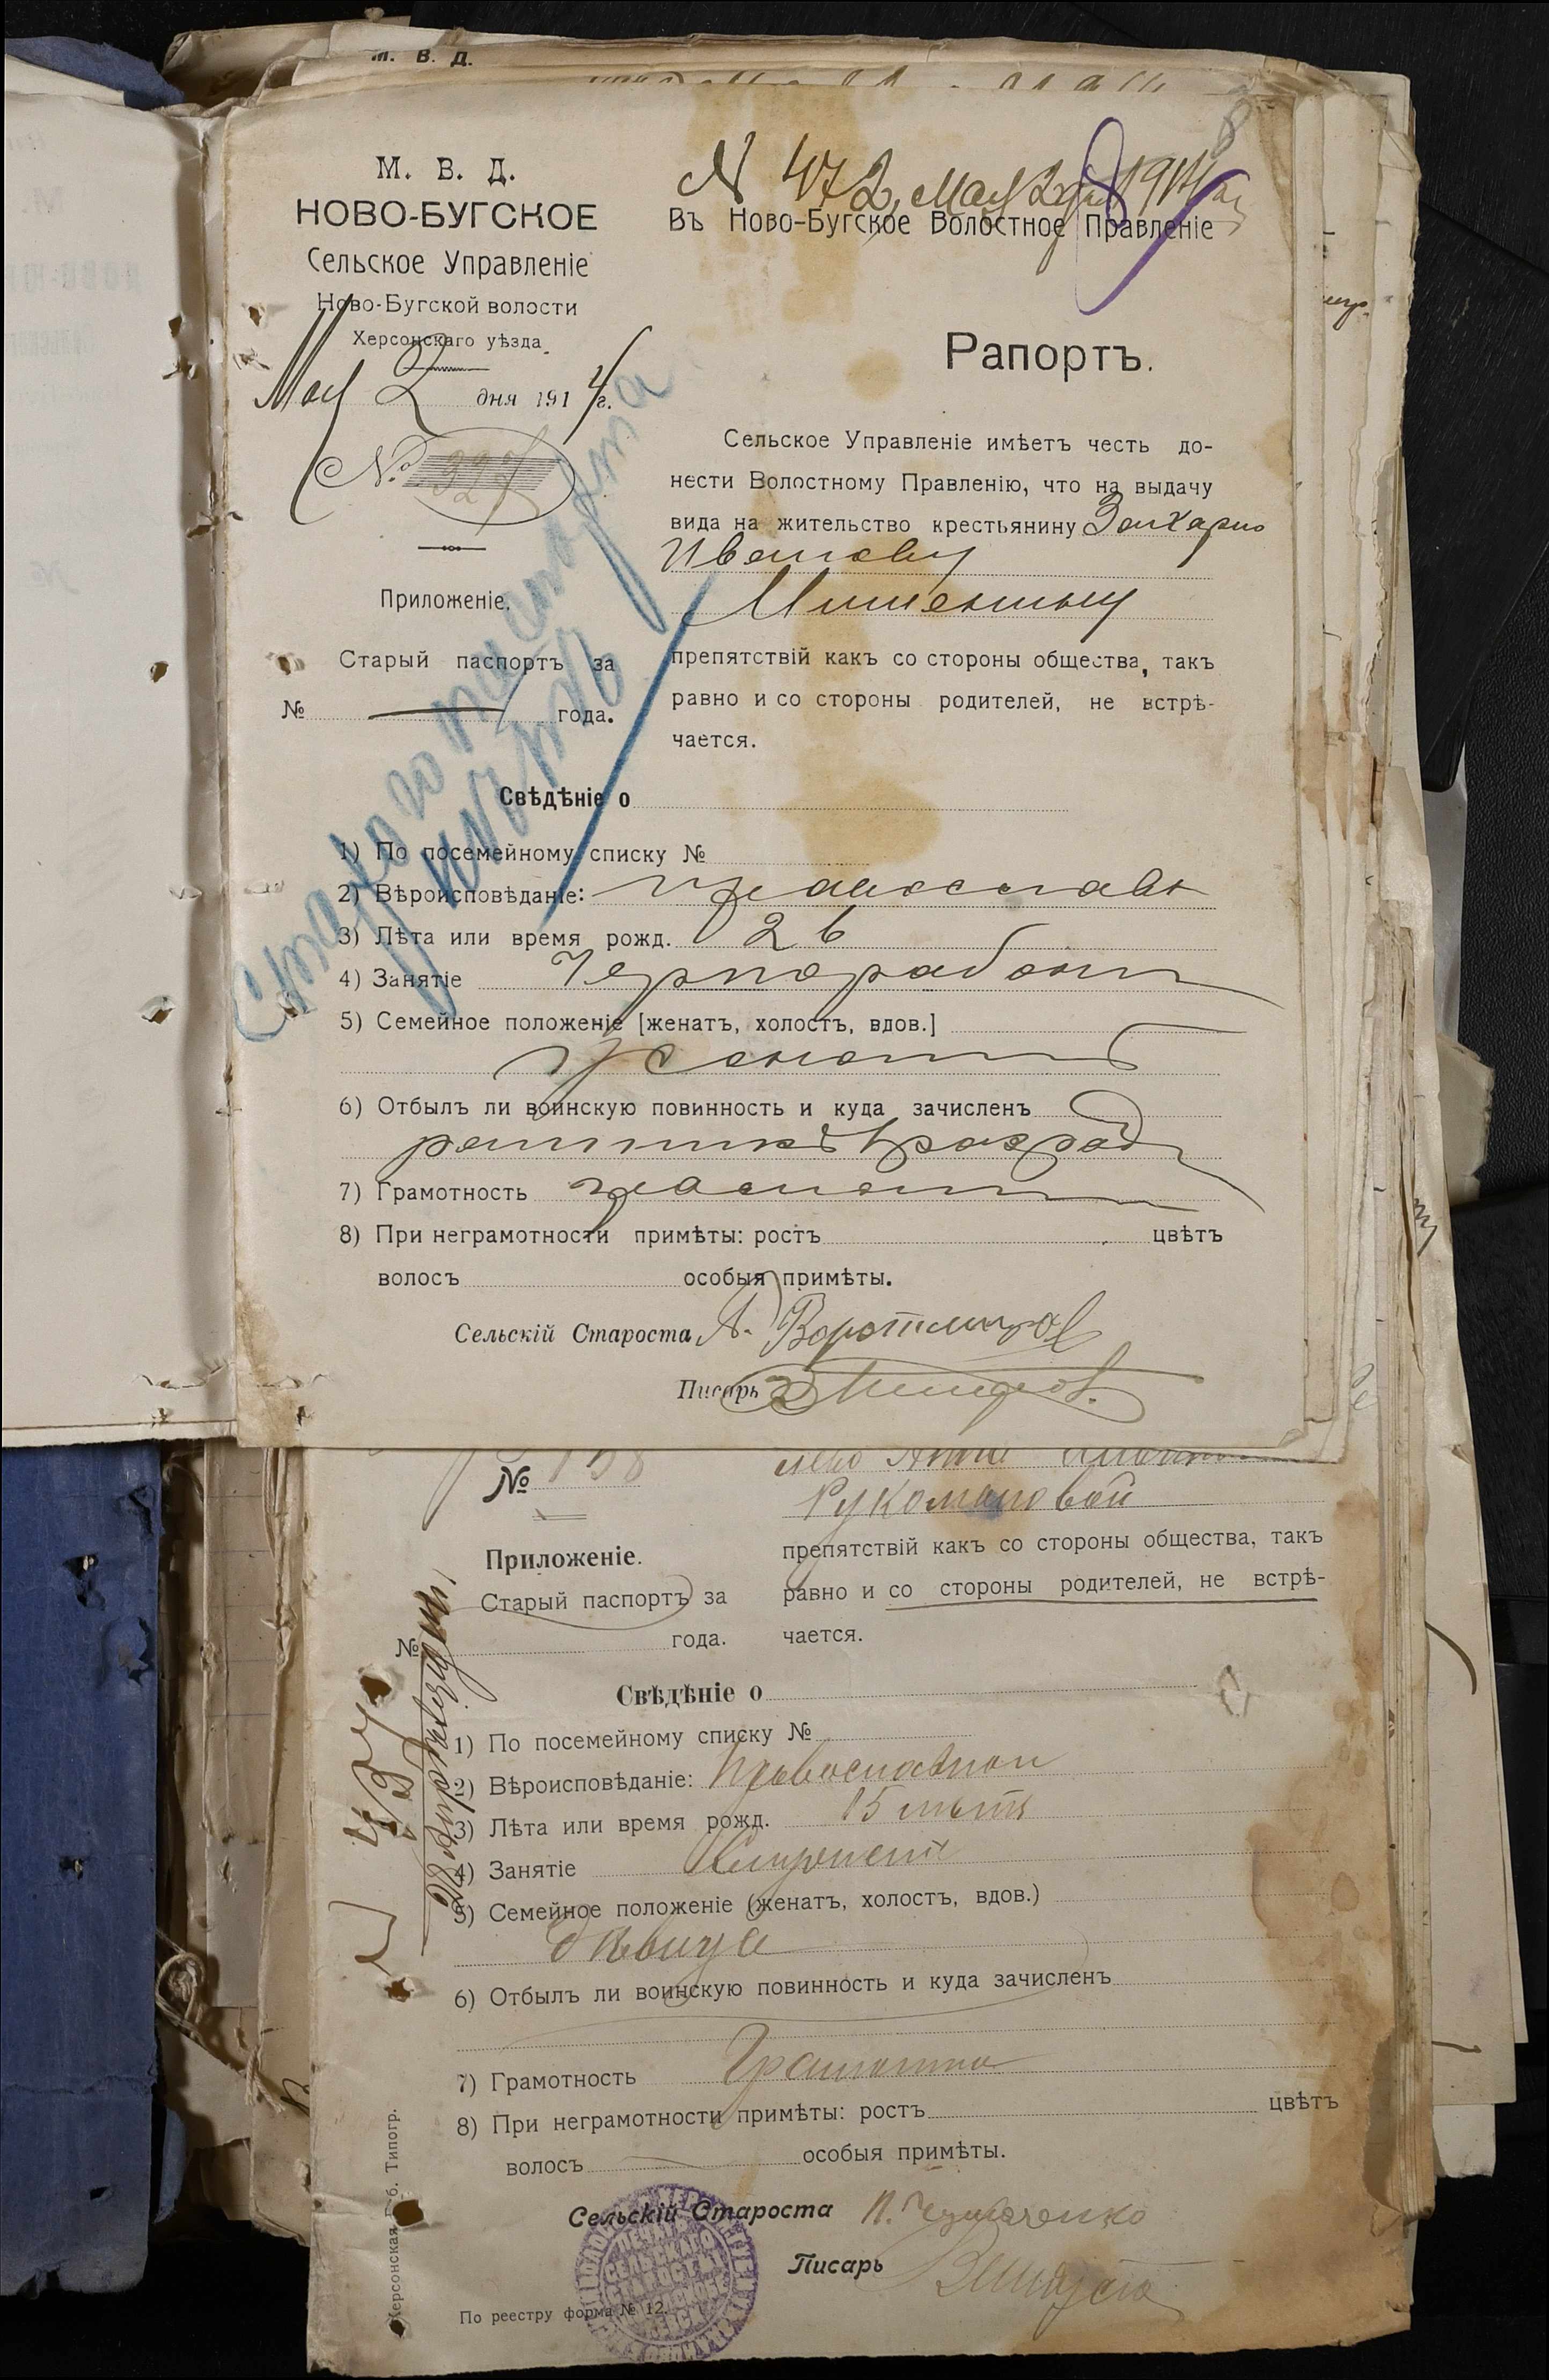 М. В. Д.
М. В. Д.
НОВО-БУГСКОЕ
Сельское Управленіе
Ново-Бугской волости
Херсонскаго уѣзда
Мая 2 дня 1914 г.
№ 327
Приложеніе.
Старый паспортъ за
№ года.
N 472, Мая 2 1914
Въ Ново-Бугское Волостное Правленіе
Рапортъ.
Сельское Управленіе имѣетъ честь до-
нести Волостному Правленію, что на выдачу
вида на жительство крестьянину Захарию
Иванову
препятствій какъ со стороны общества, такъ
равно и со стороны родителей, не встрѣ-
чается.
Стараго паспорта
нѣтъ
Свѣдѣніе о
1) По посемейному списку №
2) Вѣроисповѣданіе: православн
3) Лѣта или время рожд. 26
4) Занятіе Чернорабочи
5) Семейное положеніе [женатъ, холостъ, вдов.]
женатъ
6) Отбылъ ли воинскую повинность и куда зачисленъ
ратникъ разряд
7) Грамотность грамотн
8) При неграмотности примѣты: ростъ цвѣтъ
волосъ особыя примѣты.
Сельскій Староста А.
Писарь
№ 158
Анне
Рукомановой
Приложеніе.
Старый паспортъ за
№ года.
препятствій какъ со стороны общества, такъ
равно и со стороны родителей, не встрѣ-
чается.
Свѣдѣніе о
1) По посемейному списку №
2) Вѣроисповѣданіе: Православной
3) Лѣта или время рожд. 15 лѣтъ
4) Занятіе
5) Семейное положеніе (женатъ, холостъ, вдов.)
дѣвица
6) Отбылъ ли воинскую повинность и куда зачисленъ
7) Грамотность Грамотна
8) При неграмотности примѣты: ростъ цвѣтъ
волосъ особыя примѣты.
Сельскій Староста П.
Писарь
По реестру форма № 12.
Херсонская Губ. Типогр.